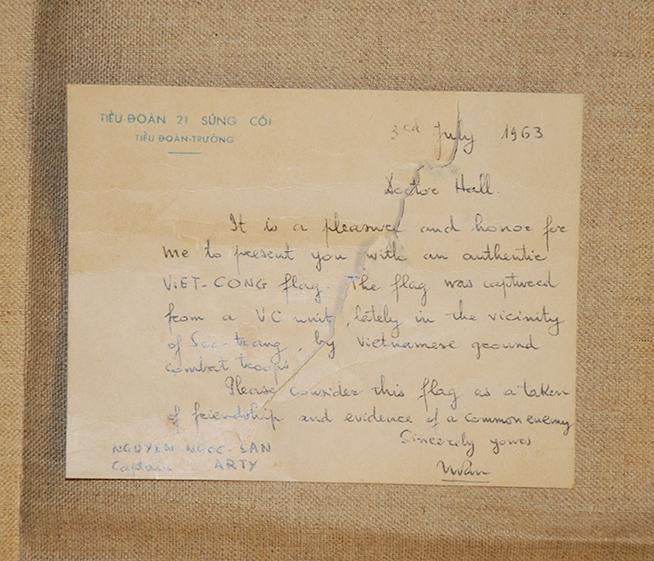 TIỂU-ĐOÀN 21 SÚNG CỐI
TIỂU ĐOÀN-TRƯỞNG
3rd July 1963
Doctor Hall.
It is a pleasure and honor for
me to present you with an authentic
VIET-CONG flag. The flag was captured
from a VC unit, lately in the vicinity
of Soc-trang, by Vietnamese ground
combat troops
Please consider this flag as a taken
of friendship and evidence of a common enemy
Sincerely yours
NGUYEN NGOC SAN
Captain ARTY